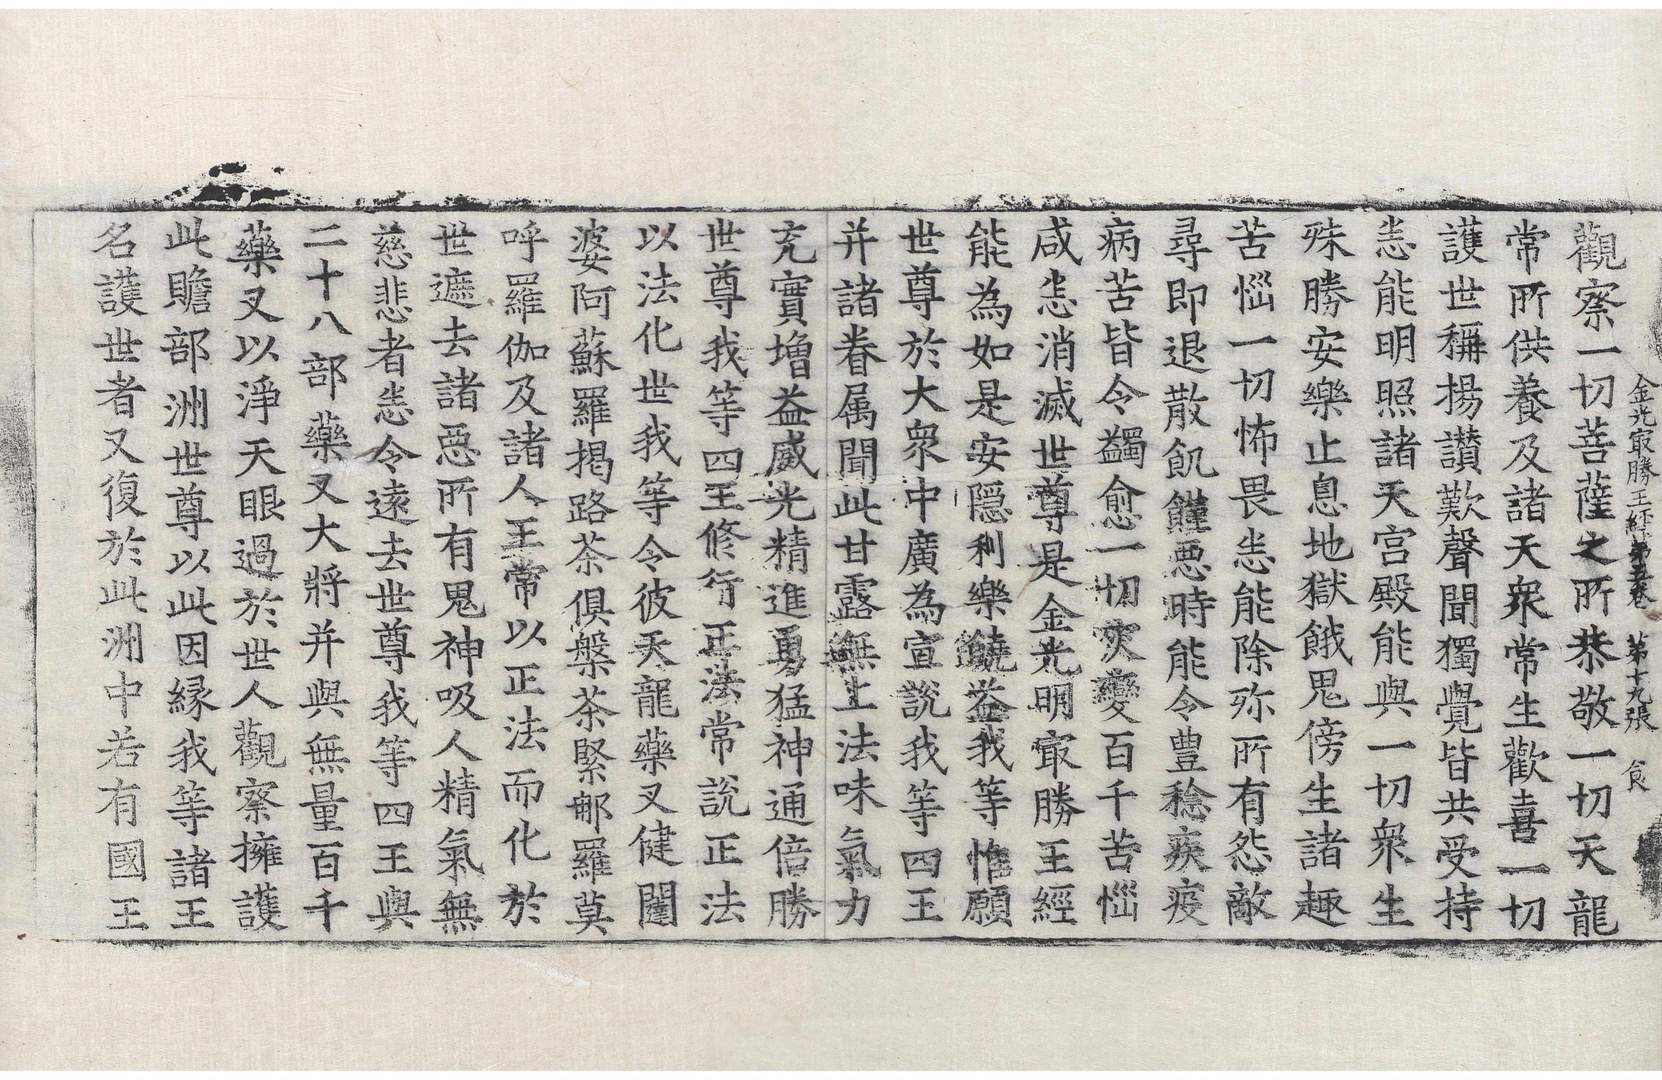 金光㝡勝王經第五卷　第十九張　食
觀察一切菩薩之所恭敬一切天龍
常所供養及諸天衆常生歡喜一切
護世稱揚讃歎聲聞獨覺皆共受持
悉能明照諸天宫殿能與一切衆生
殊勝安樂止息地獄餓鬼傍生諸趣
苦惱一切怖畏悉能除殄所有怨敵
尋即退散飢饉惡時能令豊稔疾疫
病苦皆令蠲愈一切灾變百千苦惱
咸悉消滅世尊是金光明㝡勝王經
能為如是安隱利樂饒益我等惟願
世尊於大衆中廣為宣說我等四王
并諸眷属聞此甘露無上法味氣力
充實增益威光精進勇猛神通倍勝
世尊我等四王修行正法常說正法
以法化世我等令彼天龍藥叉健闥
婆阿蘇羅揭路茶俱槃茶緊那羅莫
呼羅伽及諸人王常以正法而化於
世遮去諸惡所有鬼神吸人精氣無
慈悲者悉令遠去世尊我等四王與
二十八部藥叉大將并與無量百千
藥叉以淨天眼過於世人觀察擁護
此贍部洲世尊以此因縁我等諸王
名護世者又復於此洲中若有國王